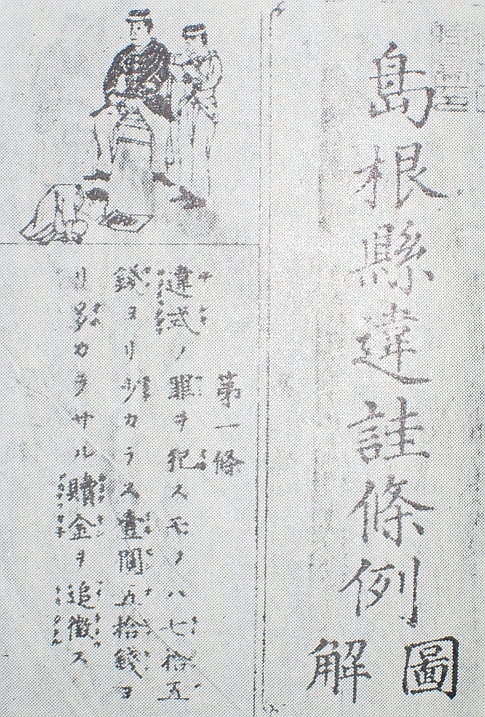 島根縣違詿條例
圖解
第一條
違式ノ罪ヲ犯スモノハ七拾五
錢ヨリ少カラス壹圓五拾錢ヨ
リ多カラサル贖金ヲ追徴ス